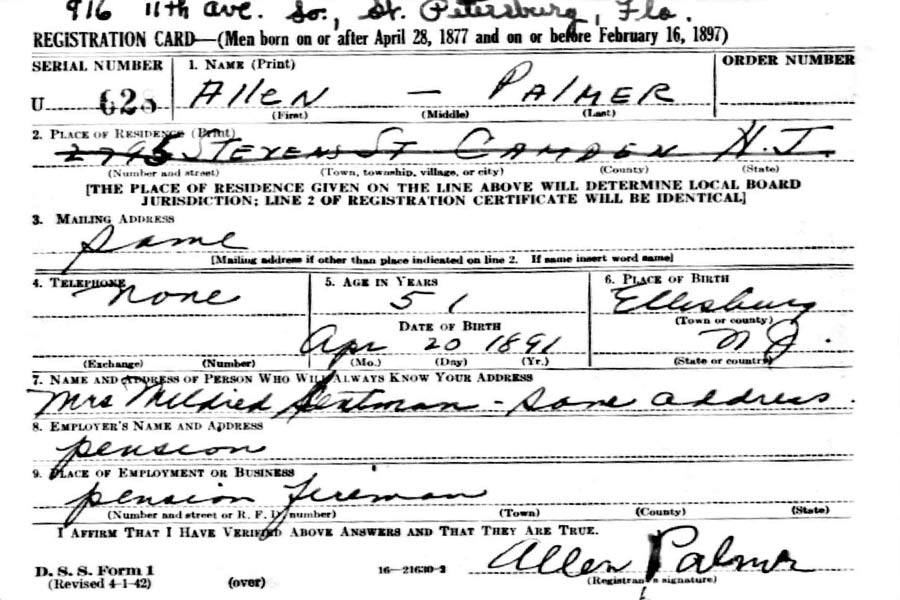 916 11th Ave. So., St. Petersburg, Fla.
REGISTRATION CARD—(Men born on or after April 28, 1877 and on or before February 16, 1897)
SERIAL NUMBER 1. NAME (Print) ORDER NUMBER
U 628 ALLEN — PALMER
(First) (Middle) (Last)
2. PLACE OF RESIDENCE (Print)
STEVENS ST CAMDEN N.J.
(Number and street) (Town, township, village, or city) (County) (State)
[THE PLACE OF RESIDENCE GIVEN ON THE LINE ABOVE WILL DETERMINE LOCAL BOARD
JURISDICTION; LINE 2 OF REGISTRATION CERTIFICATE WILL BE IDENTICAL]
3. MAILING ADDRESS
Same
[Mailing address if other than place indicated on line 2. If same insert word same]
4. TELEPHONE 5. AGE IN YEARS 6. PLACE OF BIRTH
None 51 Ellisburg
DATE OF BIRTH (Town or county)
Apr 20 1891 N J.
(Exchange) (Number) (Mo.) (Day) (Yr.) (State or country)
7. NAME AND ADDRESS OF PERSON WHO WILL ALWAYS KNOW YOUR ADDRESS
Mrs Mildred - Same address.
8. EMPLOYER'S NAME AND ADDRESS
pension
9. PLACE OF EMPLOYMENT OR BUSINESS
pension fireman
(Number and street or R. F. D. number) (Town) (County) (State)
I AFFIRM THAT I HAVE VERIFIED ABOVE ANSWERS AND THAT THEY ARE TRUE.
Allen Palmer
D. S. S. Form 1
(Revised 4-1-42) (over) 16—21630-2 (Registrant's signature)